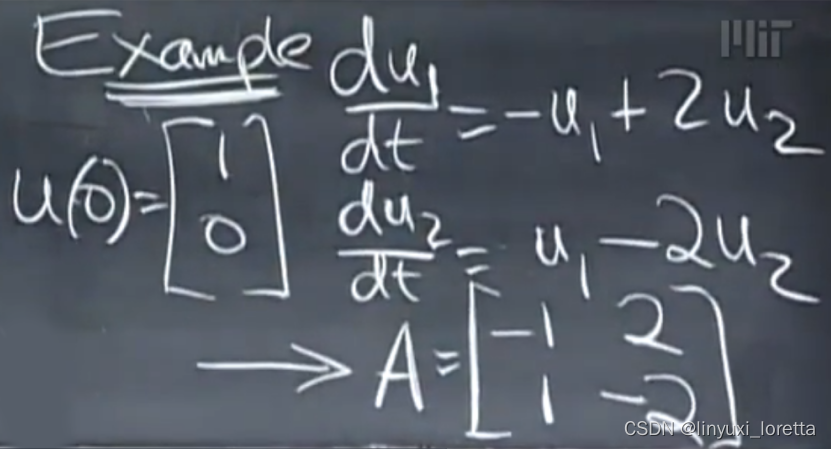 Example du₁/dt = -u₁ + 2u₂
MIT
u(0) = [1 0]
du₂/dt = u₁ - 2u₂
→ A = [-1 2
1 -2]
CSDN @linyuxi_loretta